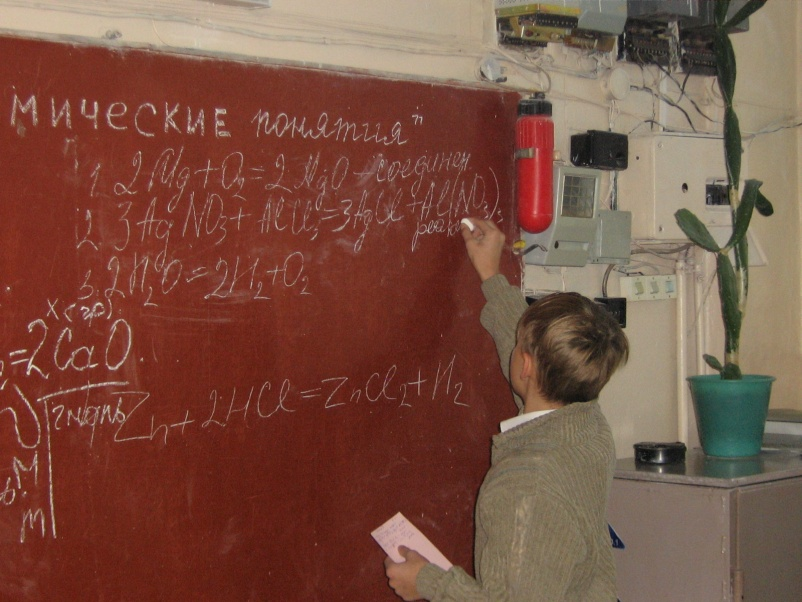 мические понятия"
1. 2Mg+O2=2MgO - соединен.
2. 3AgNO3+AlCl3=3AgCl+Al(NO3)3
3. 2H2O=2H2+O2
=2CaO.
Zn+2HCl=ZnCl2+H2
M
m